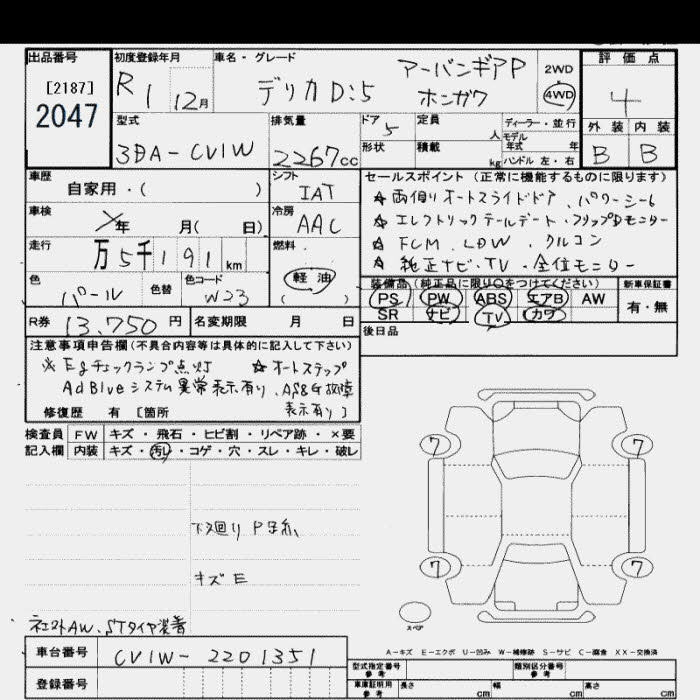 出品番号
[2187]
2047
初度登録年月
R1 12月
車名・グレード
デリカD:5
アーバンギアP
ホンガワ
2WD
4WD
評価点
4
型式
3DA-CV1W
排気量
2267cc
ドア 5
定員 人
形状
積載 kg
ディーラー・並行
モデル年式 年
ハンドル 左・右
外装 内装
B B
車歴
自家用・( )
シフト
IAT
車検
年 月( 日)
冷房
AAC
走行
万5千191km
燃料
軽油
( )
色
パール
色替
色コード
W23
R券 13,750円
名変期限 月 日
セールスポイント(正常に機能するものに限ります)
☆両側オートスライドドア、パワーシート
☆エレクトリックテールゲート・フリップDモニター
☆FCM、LDW、クルコン
☆純正ナビ・TV・全位モニター
装備品(純正品に限り○をつけてください)
PS PW ABS エアB AW
SR ナビ TV カワ
新車保証書
有・無
後日品
注意事項申告欄(不具合内容等は具体的に記入して下さい)
※Egチェックランプ点灯 ☆オートステップ
AdBlueシステム異常表示有り、AS&G故障
表示有り]
修復歴 有 [箇所
検査員 FW キズ・飛石・ヒビ割・リペア跡・×要
記入欄 内装 キズ・汚レ・コゲ・穴・スレ・キレ・破レ
下廻り
キズE
AW、STタイヤ装着
車台番号
CV1W-2201351
登録番号
7 7
7 7
スペア
A-キズ E-エクボ U-凹み W-補修跡 S-サビ C-腐食 XX-交換済
型式指定番号 参考
類別区分番号 参考
車庫証明用 参考
長さ cm 幅 cm 高さ cm